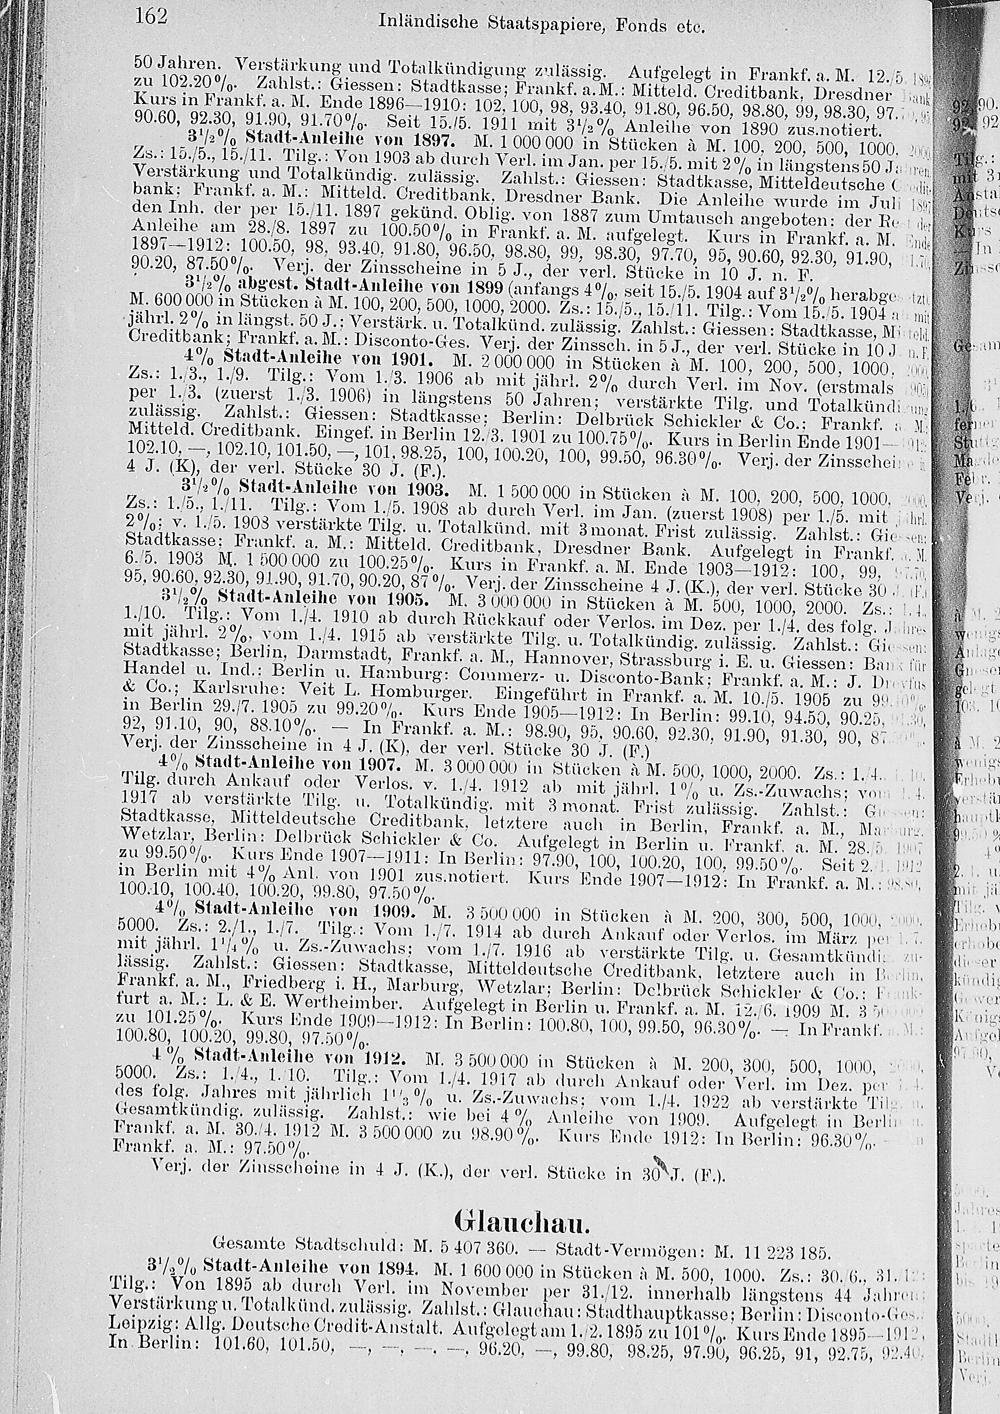 162 Inländische Staatspapiere, Fonds etc.
50 Jahren. Verstärkung und Totalkündigung zulässig. Aufgelegt in Frankf. a. M. 12./5.
zu 102.20%. Zahlst.: Giessen: Stadtkasse; Frankf. a. M.: Mitteld. Creditbank, Dresdner
Kurs in Frankf. a. M. Ende 1896—1910: 102, 100, 98, 93.40, 91.80, 96.50, 98.80, 99, 98.30, 97.
90.60, 92.30, 91.90, 91.70%. Seit 15./5. 1911 mit 3½% Anleihe von 1890 zus.notiert.
3½% Stadt-Anleihe von 1897. M. 1 000 000 in Stücken à M. 100, 200, 500, 1000,
Zs.: 15./5., 15./11. Tilg.: Von 1903 ab durch Verl. im Jan. per 15./5. mit 2% in längstens 50
Verstärkung und Totalkündig. zulässig. Zahlst.: Giessen: Stadtkasse, Mitteldeutsche
bank; Frankf. a. M.: Mitteld. Creditbank, Dresdner Bank. Die Anleihe wurde im Juli
den Inh. der per 15./11. 1897 gekünd. Oblig. von 1887 zum Umtausch angeboten: der
Anleihe am 28./8. 1897 zu 100.50% in Frankf. a. M. aufgelegt. Kurs in Frankf. a. M.
1897—1912: 100.50, 98, 93.40, 91.80, 96.50, 98.80, 99, 98.30, 97.70, 95, 90.60, 92.30, 91.90,
90.20, 87.50%. Verj. der Zinsscheine in 5 J., der verl. Stücke in 10 J. n. F.
3½% abgest. Stadt-Anleihe von 1899 (anfangs 4%, seit 15./5. 1904 auf 3½% herabge
M. 600 000 in Stücken à M. 100, 200, 500, 1000, 2000. Zs.: 15./5., 15./11. Tilg.: Vom 15./5. 1904 a
jährl. 2% in längst. 50 J.; Verstärk. u. Totalkünd. zulässig. Zahlst.: Giessen: Stadtkasse,
Creditbank; Frankf. a. M.: Disconto-Ges. Verj. der Zinssch. in 5 J., der verl. Stücke in 10 J. n. F.
4% Stadt-Anleihe von 1901. M. 2 000 000 in Stücken à M. 100, 200, 500, 1000,
Zs.: 1./3., 1./9. Tilg.: Vom 1./3. 1906 ab mit jährl. 2% durch Verl. im Nov. (erstmals
per 1./3. (zuerst 1./3. 1906) in längstens 50 Jahren; verstärkte Tilg. und Totalkündi
zulässig. Zahlst.: Giessen: Stadtkasse; Berlin: Delbrück Schickler & Co.; Frankf. a. M.:
Mitteld. Creditbank. Eingef. in Berlin 12./3. 1901 zu 100.75%. Kurs in Berlin Ende 1901—
102.10, —, 102.10, 101.50, —, 101, 98.25, 100, 100.20, 100, 99.50, 96.30%. Verj. der Zinsschei
4 J. (K), der verl. Stücke 30 J. (F.).
3½% Stadt-Anleihe von 1903. M. 1 500 000 in Stücken à M. 100, 200, 500, 1000,
Zs.: 1./5., 1./11. Tilg.: Vom 1./5. 1908 ab durch Verl. im Jan. (zuerst 1908) per 1./5. mit
2%; v. 1./5. 1908 verstärkte Tilg. u. Totalkünd. mit 3 monat. Frist zulässig. Zahlst.:
Stadtkasse; Frankf. a. M.: Mitteld. Creditbank, Dresdner Bank. Aufgelegt in Frankf. a. M.
6./5. 1903 M. 1 500 000 zu 100.25%. Kurs in Frankf. a. M. Ende 1903—1912: 100, 99,
95, 90.60, 92.30, 91.90, 91.70, 90.20, 87%. Verj. der Zinsscheine 4 J. (K.), der verl. Stücke 30
3½% Stadt-Anleihe von 1905. M. 3 000 000 in Stücken à M. 500, 1000, 2000. Zs.: 1./4.,
1./10. Tilg.: Vom 1./4. 1910 ab durch Rückkauf oder Verlos. im Dez. per 1./4. des folg.
mit jährl. 2%, vom 1./4. 1915 ab verstärkte Tilg. u. Totalkündig. zulässig. Zahlst.:
Stadtkasse; Berlin, Darmstadt, Frankf. a. M., Hannover, Strassburg i. E. u. Giessen: Bank für
Handel u. Ind.; Berlin u. Hamburg: Commerz- u. Disconto-Bank; Frankf. a. M.: J. Dreyfus
& Co.; Karlsruhe: Veit L. Homburger. Eingeführt in Frankf. a. M. 10./5. 1905 zu
in Berlin 29./7. 1905 zu 99.20%. Kurs Ende 1905—1912: In Berlin: 99.10, 94.50, 90.25,
92, 91.10, 90, 88.10%. — In Frankf. a. M.: 98.90, 95, 90.60, 92.30, 91.90, 91.30, 90,
Verj. der Zinsscheine in 4 J. (K), der verl. Stücke 30 J. (F.)
4% Stadt-Anleihe von 1907. M. 3 000 000 in Stücken à M. 500, 1000, 2000. Zs.: 1./4.
Tilg. durch Ankauf oder Verlos. v. 1./4. 1912 ab mit jährl. 1% u. Zs.-Zuwachs;
1917 ab verstärkte Tilg. u. Totalkündig. mit 3 monat. Frist zulässig. Zahlst.:
Stadtkasse, Mitteldeutsche Creditbank, letztere auch in Berlin, Frankf. a. M.,
Wetzlar, Berlin: Delbrück Schickler & Co. Aufgelegt in Berlin u. Frankf. a. M. 28./5. 1907
zu 99.50%. Kurs Ende 1907—1911: In Berlin: 97.90, 100, 100.20, 100, 99.50%. Seit
in Berlin mit 4% Anl. von 1901 zus.notiert. Kurs Ende 1907—1912: In Frankf. a. M.:
100.10, 100.40, 100.20, 99.80, 97.50%.
4% Stadt-Anleihe von 1909. M. 3 500 000 in Stücken à M. 200, 300, 500, 1000,
5000. Zs.: 2./1., 1./7. Tilg.: Vom 1./7. 1914 ab durch Ankauf oder Verlos. im März per 1./7.
mit jährl. 1¼% u. Zs.-Zuwachs; vom 1./7. 1916 ab verstärkte Tilg. u. Gesamtkündi
lässig. Zahlst.: Giessen: Stadtkasse, Mitteldeutsche Creditbank, letztere auch in Berlin,
Frankf. a. M., Friedberg i. H., Marburg, Wetzlar; Berlin: Delbrück Schickler & Co.;
furt a. M.: L. & E. Wertheimber. Aufgelegt in Berlin u. Frankf. a. M. 12./6. 1909 M.
zu 101.25%. Kurs Ende 1909—1912: In Berlin: 100.80, 100, 99.50, 96.30%. — In Frankf. a. M.:
100.80, 100.20, 99.80, 97.50%.
4% Stadt-Anleihe von 1912. M. 3 500 000 in Stücken à M. 200, 300, 500, 1000,
5000. Zs.: 1./4., 1./10. Tilg.: Vom 1./4. 1917 ab durch Ankauf oder Verl. im Dez. per 1./4.
des folg. Jahres mit jährlich 1⅓% u. Zs.-Zuwachs; vom 1./4. 1922 ab verstärkte Tilg. u.
Gesamtkündig. zulässig. Zahlst.: wie bei 4% Anleihe von 1909. Aufgelegt in Berlin u.
Frankf. a. M. 30./4. 1912 M. 3 500 000 zu 98.90%. Kurs Ende 1912: In Berlin: 96.30%.
Frankf. a. M.: 97.50%.
Verj. der Zinsscheine in 4 J. (K.), der verl. Stücke in 30 J. (F.).
Glauchau.
Gesamte Stadtschuld: M. 5 407 360. — Stadt-Vermögen: M. 11 223 185.
3½% Stadt-Anleihe von 1894. M. 1 600 000 in Stücken à M. 500, 1000. Zs.: 30./6., 31./12.
Tilg.: Von 1895 ab durch Verl. im November per 31./12. innerhalb längstens 44 Jahren;
Verstärkung u. Totalkünd. zulässig. Zahlst.: Glauchau: Stadthauptkasse; Berlin: Disconto-Ges.
Leipzig: Allg. Deutsche Credit-Anstalt. Aufgelegt am 1./2. 1895 zu 101%. Kurs Ende 1895—1912.
In Berlin: 101.60, 101.50, —, —, —, —, 96.20, —, 99.80, 98.25, 97.90, 96.25, 91, 92.75, 92.40,